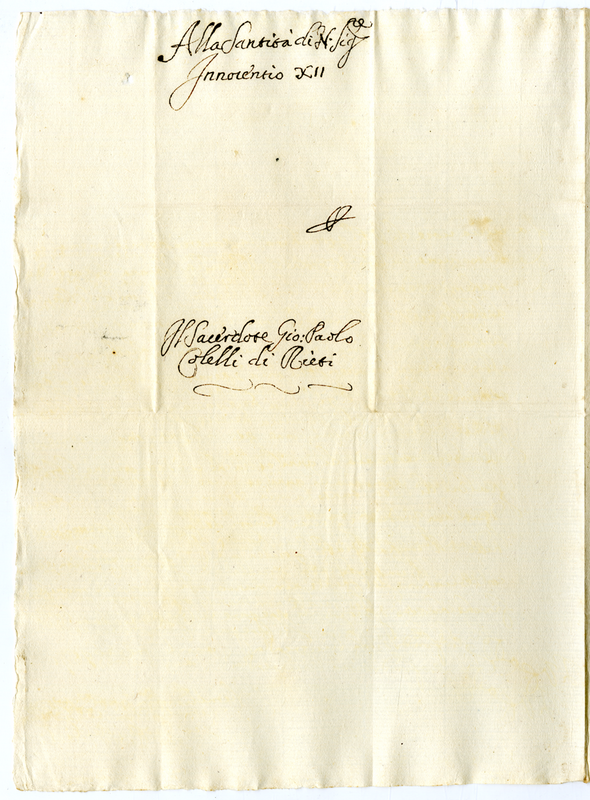 Alla Santità di N. Sig.re
Innocentio XII
Il Sacerdote Gio: Paolo
Colelli di Rieti